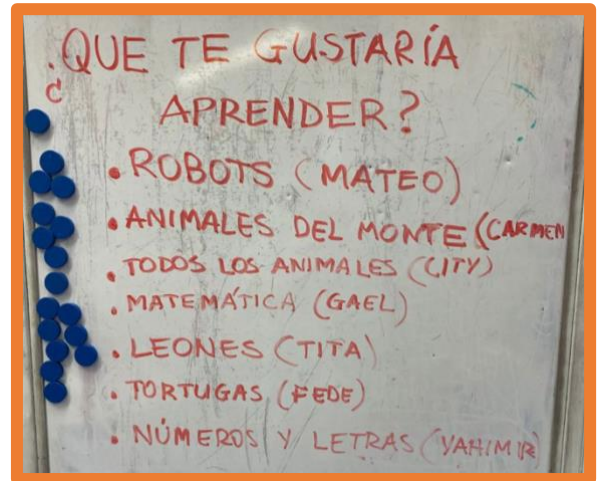 ¿QUE TE GUSTARÍA
APRENDER?
• ROBOTS (MATEO)
• ANIMALES DEL MONTE (CARMEN
• TODOS LOS ANIMALES (CITY)
• MATEMÁTICA (GAEL)
• LEONES (TITA)
• TORTUGAS (FEDE)
• NÚMEROS Y LETRAS (YAHIMIR)